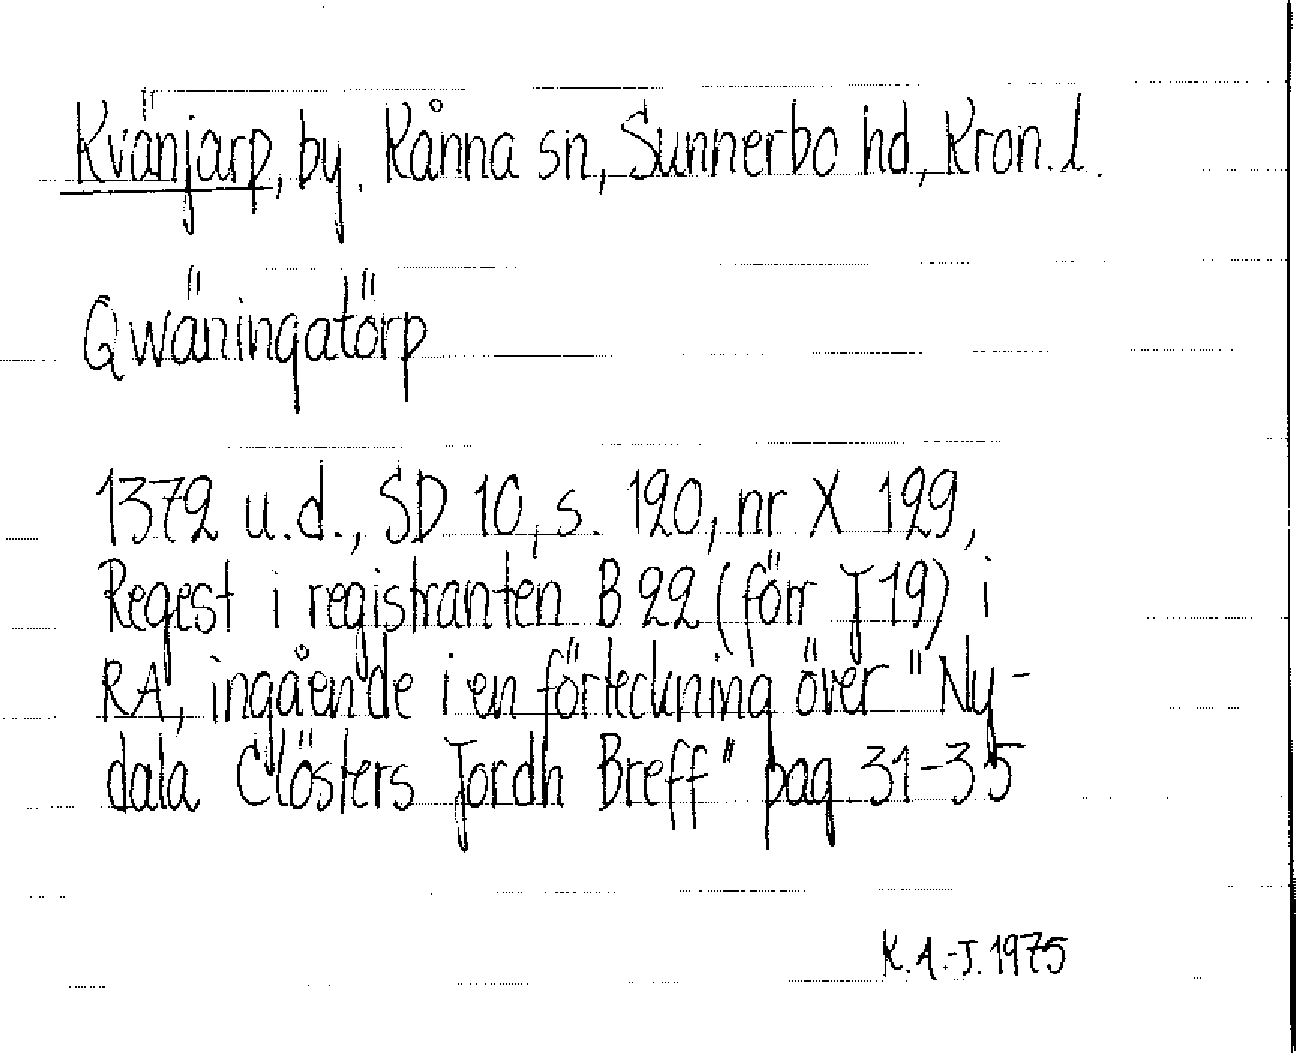 Kvänjarp, by. Kånna sn, Sunnerbo hd, Kron. l.
Qwäningatörp
1372 u.d., SD 10, s. 120, nr X 129,
Regest i registranten B 22 (förr J 19) i
RA, ingående i en förteckning över "Ny-
dala Clösters Jordh Breff" pag. 31-35
K.A.-J. 1975